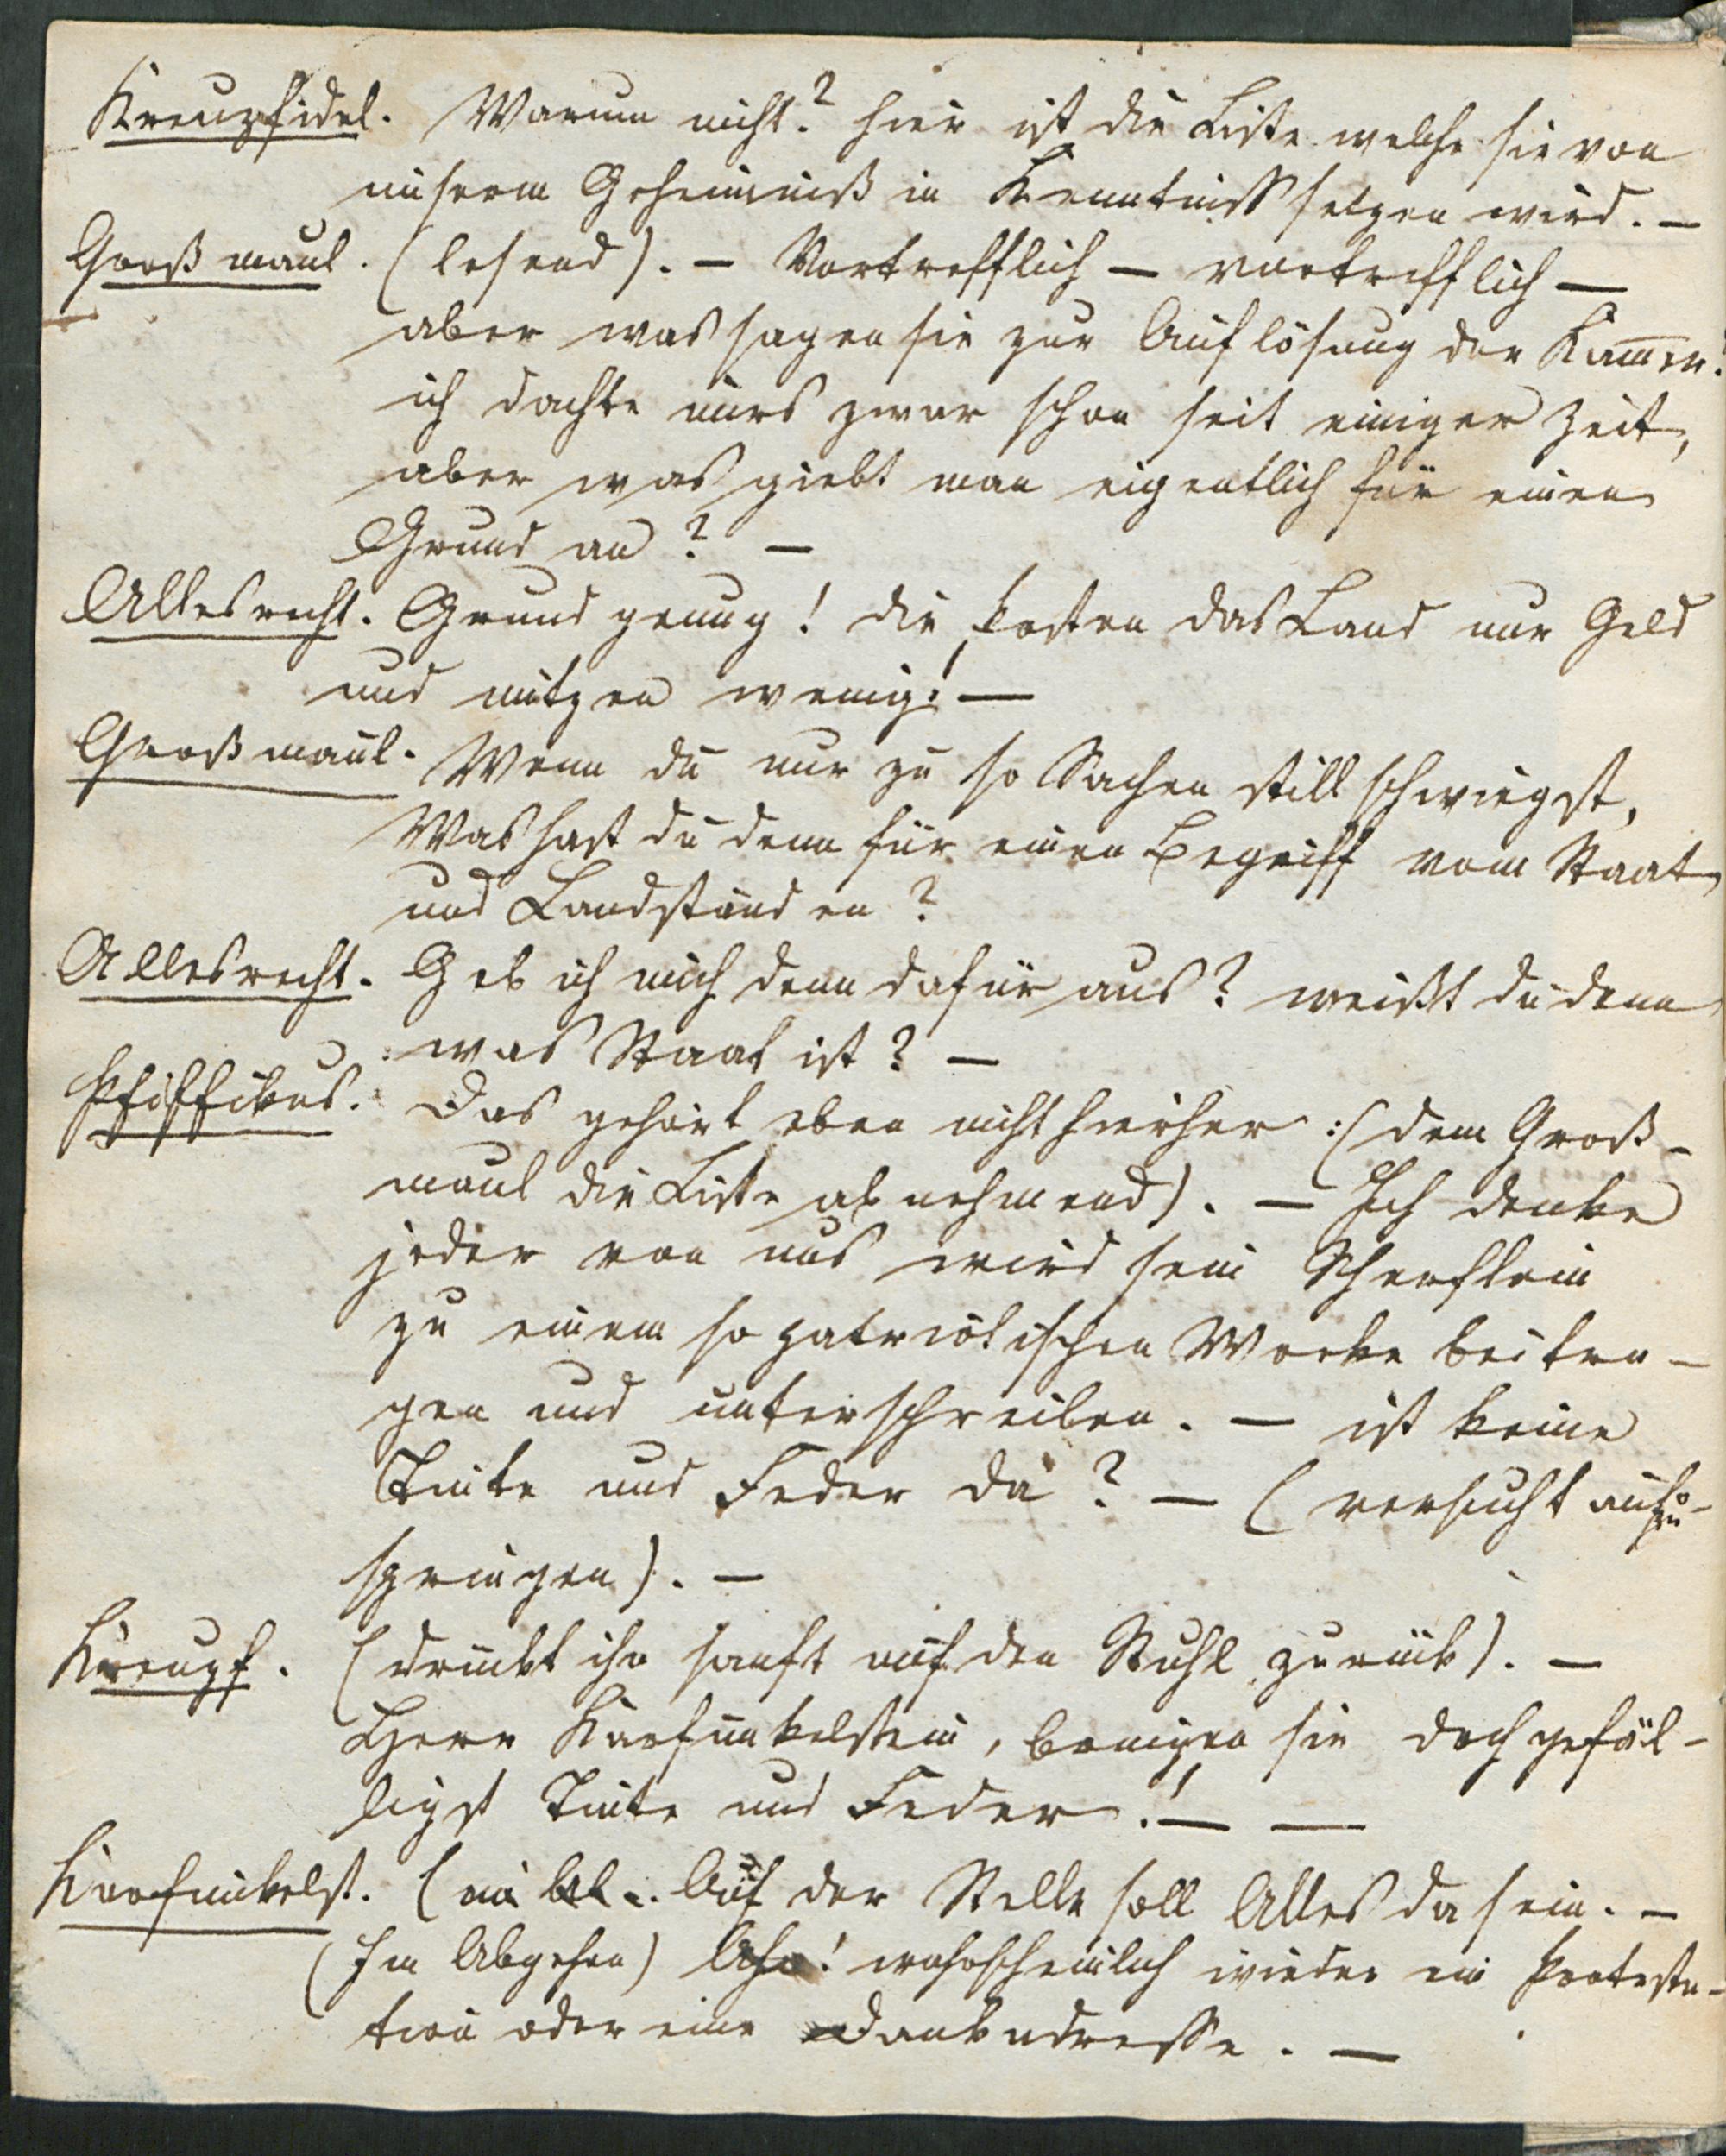 Kreuzfidel. Warum nicht? hier ist die Liste welche sie von
unserm Geheimniß in Kenntniß setzen wird. —
Großmaul. (lesend). — Vortrefflich — vortrefflich —
aber was sagen sie zur Auflösung der Kam̅er?
ich dachte mirs zwar schon seit einiger Zeit,
aber was giebt man eigentlich für einen
Grund an? —
Allesrecht. Grund genug! die kosten das Land nur Geld
und nützen wenig! —
Großmaul. Wenn du nur zu so Sachen still schwiegst,
Was hast du denn für einen Begriff vom Staat
und Landständen?
Allesrecht. Geb ich mich denn dafür aus? weißt du denn
was Staat ist? —
Pfiffikus. Das gehört eben nicht hierher :(dem Groß-
maul die Liste abnehmend). — Ich denke
jeder von uns wird sein Scherflein
zu einem so patriotischen Werke beitra-
gen und unterschreiben. — ist keine
Tinte und Feder da? — (versucht aufzu-
springen). —
Kreuzf. (drückt ihn sanft auf den Stuhl zurück). —
Herr Karfunkelstein, bringen sie doch gefäl-
ligst Tinte und Feder! — —
Karfunkelst. Auf der Stelle soll Alles da sein. —
(Im Abgehen) Aha! wahrscheinlich wieder ein Protesta-
tion oder eine Dankadresse. —